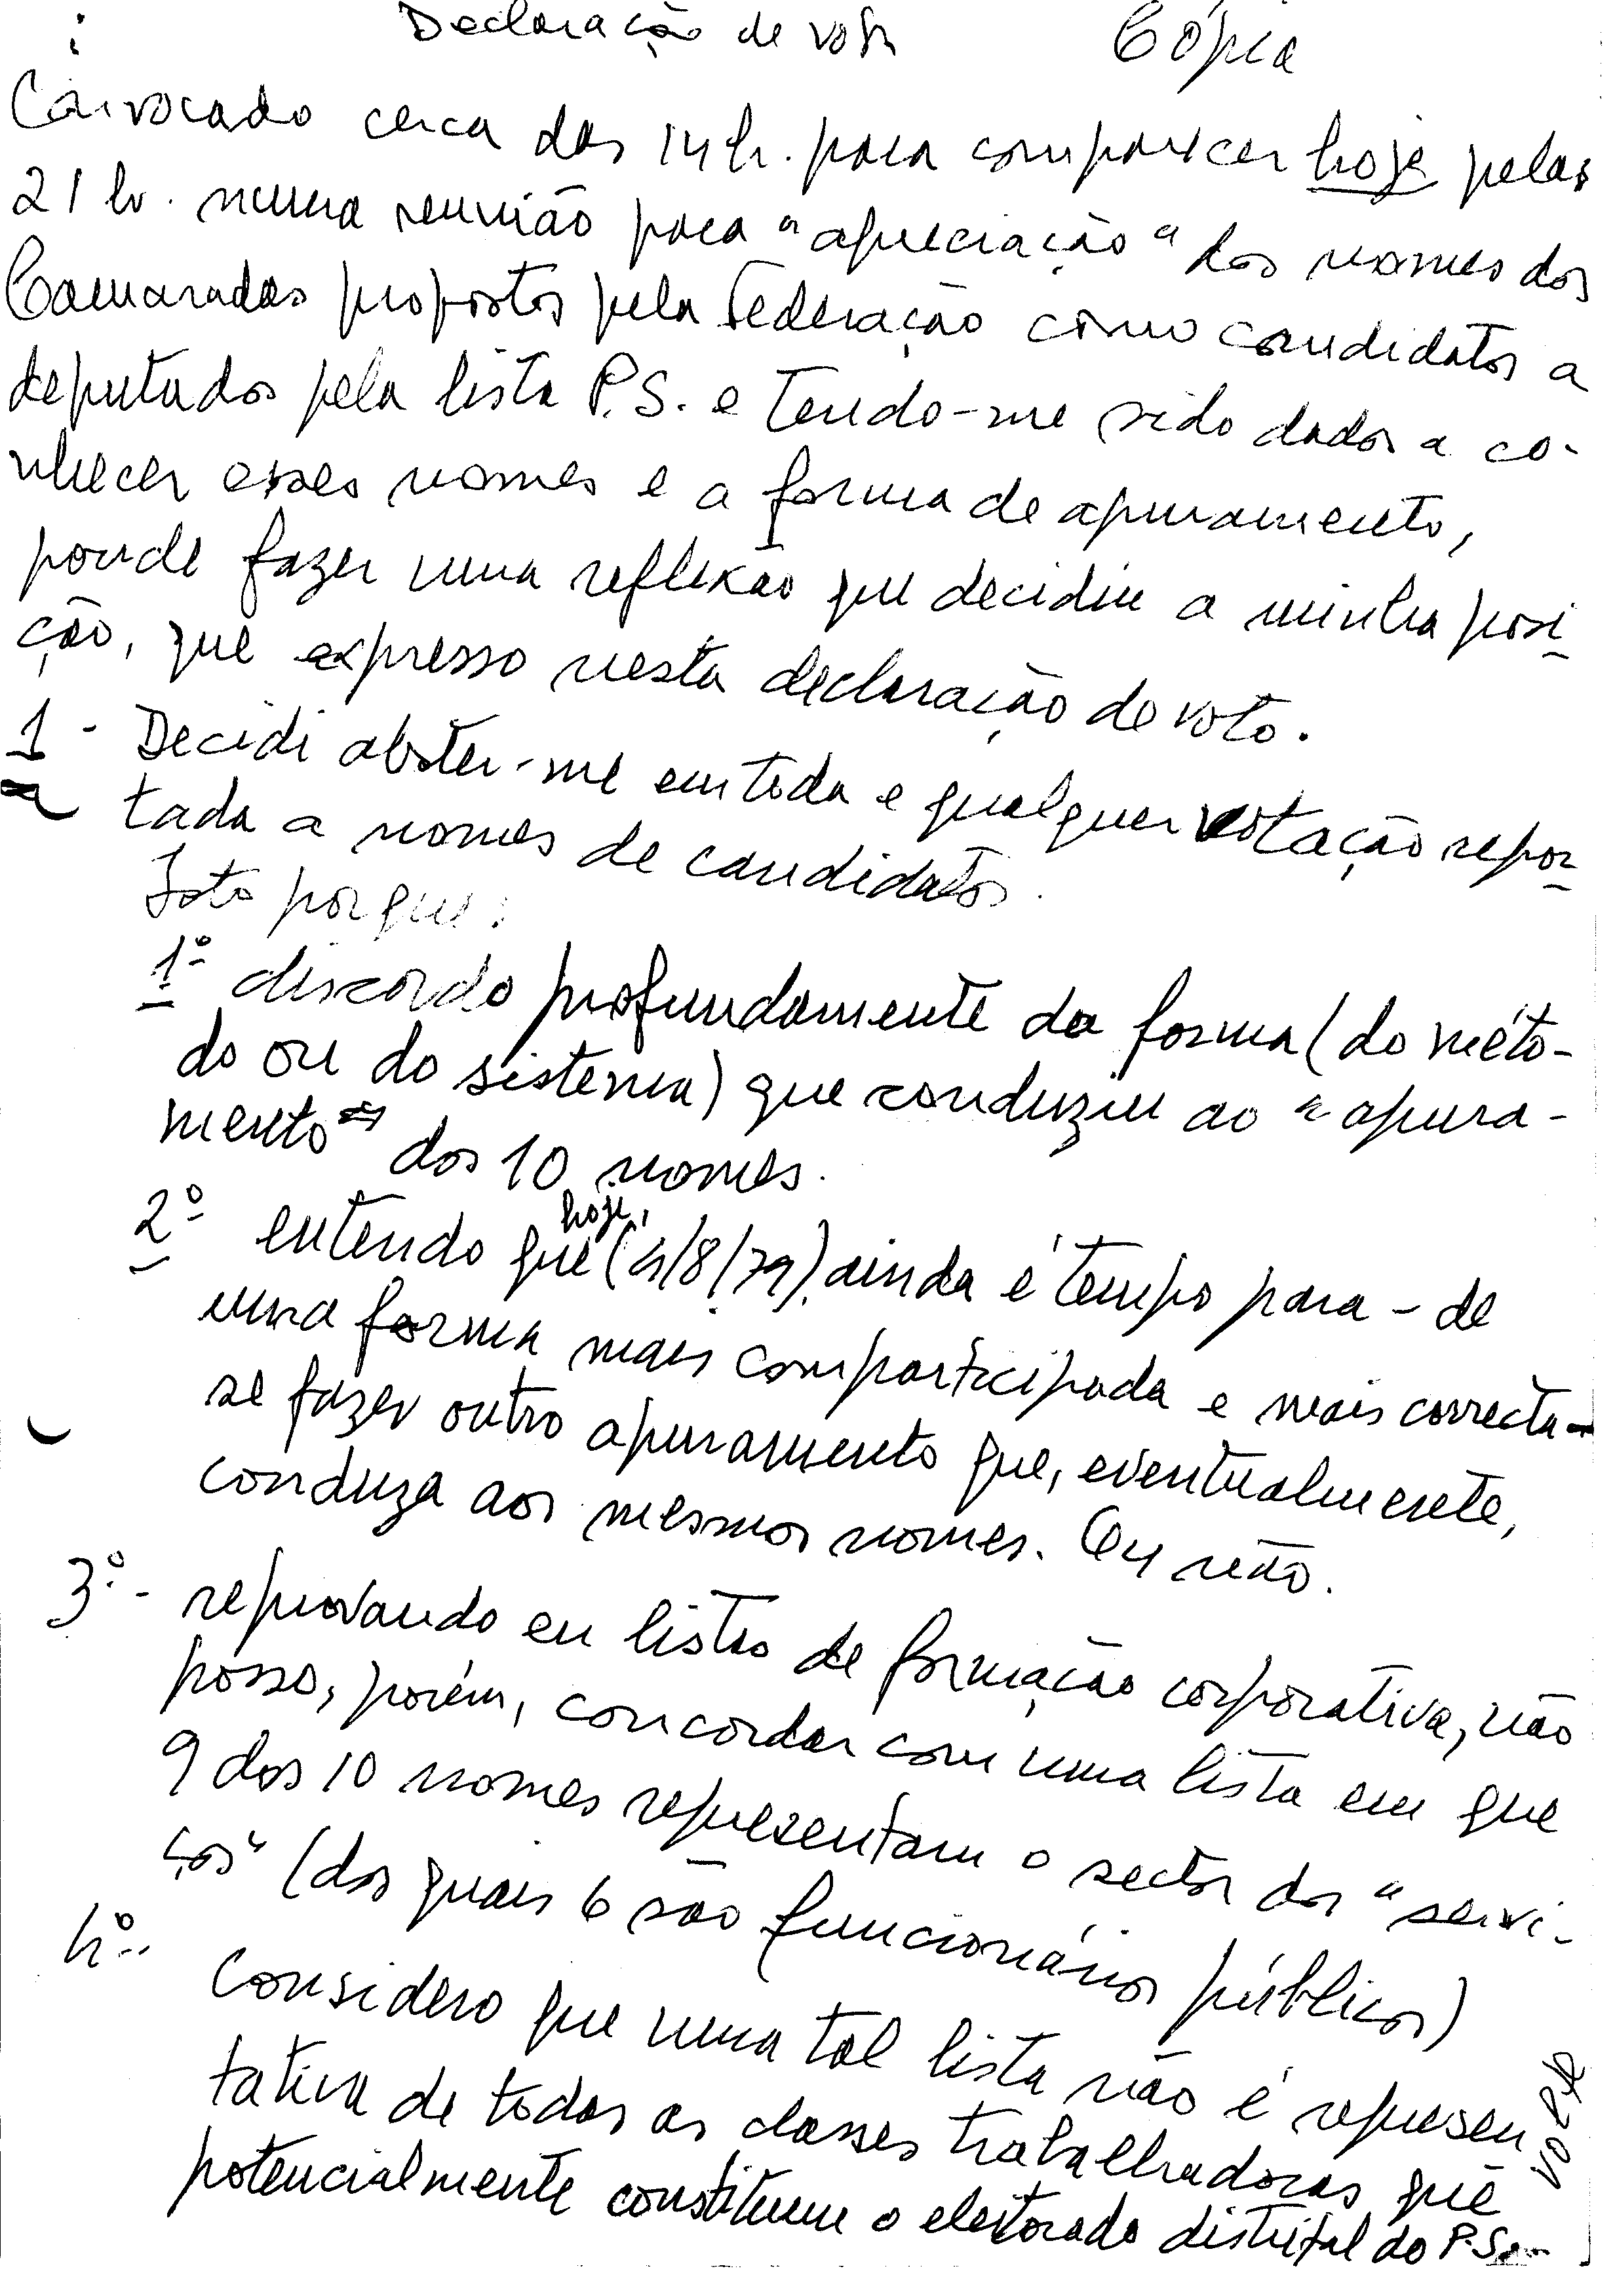 Declaração de voto Cópia
Convocado cerca das 14 h. para comparecer hoje pelas
21 h. numa reunião para "apreciação" dos nomes dos
Camaradas propostos pela Federação como candidatos a
deputados pela lista P.S. e tendo-me sido dados a co-
nhecer esses nomes e a forma de apuramento,
poude fazer uma reflexão que decidiu a minha posi-
ção, que expresso nesta declaração de voto.
1 - Decidi abster-me em toda e qualquer votação repor-
tada a nomes de candidatos.
Isto porque:
1º discordo profundamente da forma (do méto-
do ou do sistema) que conduziu ao "apura-
mento" dos 10 nomes.
2º entendo que hoje, (4/8/79) ainda é tempo para - de
uma forma mais comparticipada e mais correcta -
se fazer outro apuramento que, eventualmente,
conduza aos mesmos nomes. Ou não.
3º - reprovando eu listas de formação corporativa, não
posso, porém, concordar com uma lista em que
9 dos 10 nomes representam o sector dos "servi-
ços" (dos quais 6 são funcionários públicos)
4º - Considero que uma tal lista não é represen
tativa de todas as classes trabalhadoras que
potencialmente constituem o eleitorado distrital do P.S.
volte